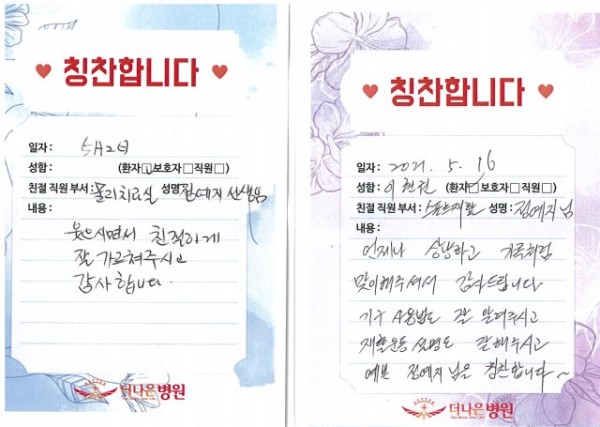 칭찬합니다
일자 : 5月2日
성함 : (환자☑보호자□직원□)
친절 직원 부서 : 물리치료실 성명 : 정예지 선생님
내용 :
웃으시면서 친절하게
잘 가르쳐주시고
감사합니다.
더나은병원
칭찬합니다
일자 : 2021. 5. 16
성함 : 이현진 (환자☑보호자□직원□)
친절 직원 부서 : 스포츠재활 성명 : 정예지 님
내용 :
언제나 상냥하고
맞이해주셔서 감사드립니다
기구 사용법도 잘 알려주시고
재활운동 설명도 잘해주시고
예쁜 정예지님을 칭찬합니다~
더나은병원